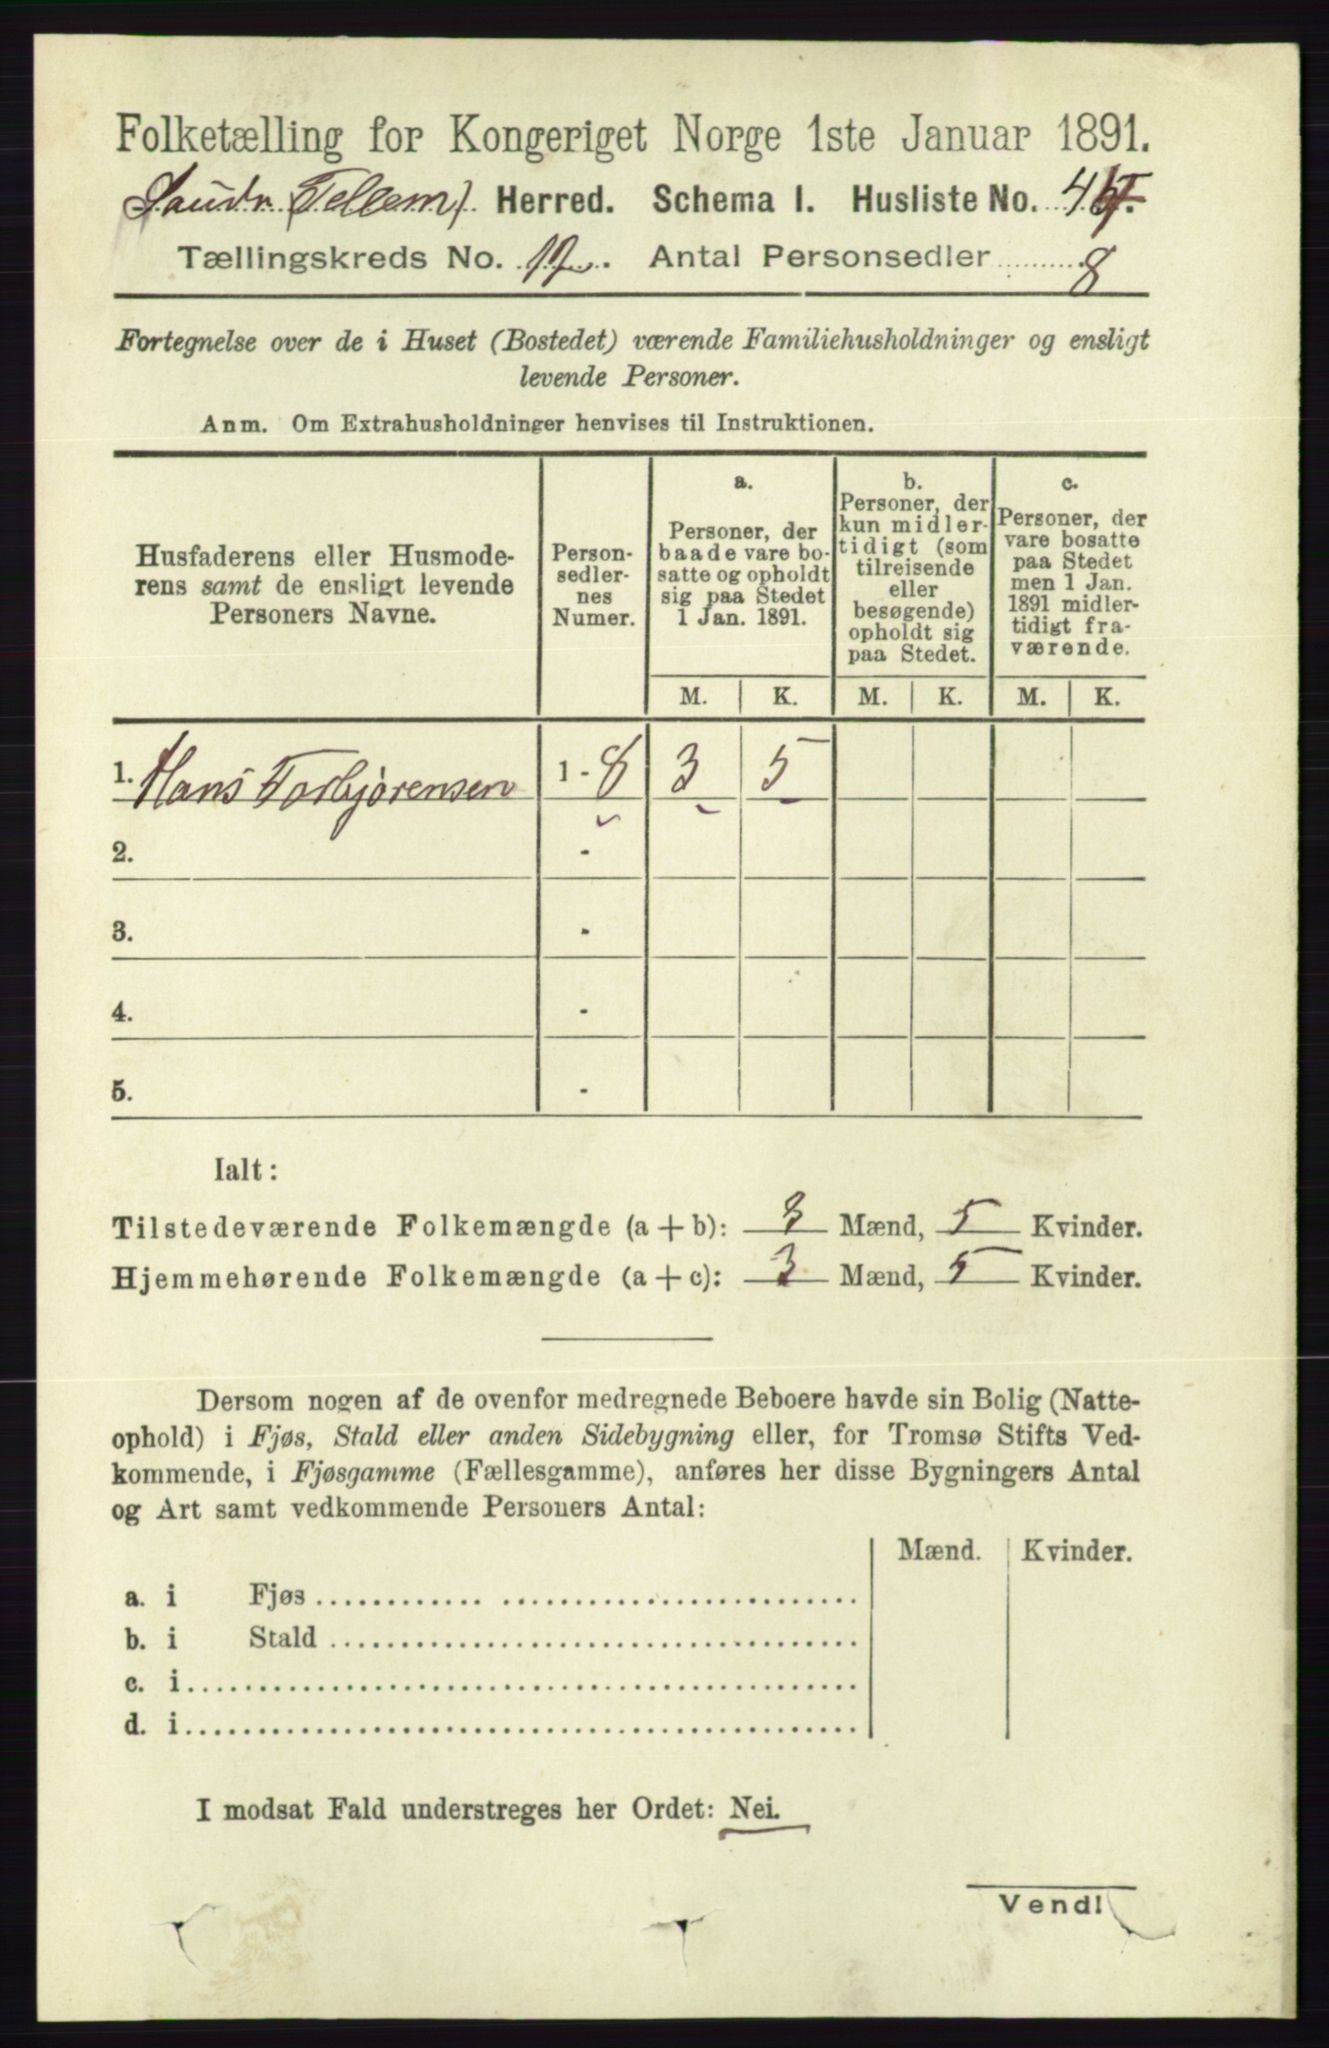 Folketælling for Kongeriget Norge 1ste Januar 1891.
(Tellem) Herred. Schema I. Husliste No.
Tællingskreds No. Antal Personsedler 8
Fortegnelse over de i Huset (Bostedet) værende Familiehusholdninger og ensligt
levende Personer.
Anm. Om Extrahusholdninger henvises til Instruktionen.
Husfaderens eller Husmode-
rens samt de ensligt levende
Personers Navne.
Person-
sedler-
nes
Numer.
a.
Personer, der
baade vare bo-
satte og opholdt
sig paa Stedet
1 Jan. 1891.
b.
Personer, der
kun midler-
tidigt (som
tilreisende
eller
besøgende)
opholdt sig
paa Stedet.
c.
Personer, der
vare bosatte
paa Stedet
men 1 Jan.
1891 midler-
tidigt fra-
værende.
M. K. M. K. M. K.
1. Hans Torbjørensen 1 - 8 3 5
2. -
3. -
4. -
5. -
Ialt:
Tilstedeværende Folkemængde (a + b): 3 Mænd, 5 Kvinder.
Hjemmehørende Folkemængde (a + c): 3 Mænd, 5 Kvinder.
Dersom nogen af de ovenfor medregnede Beboere havde sin Bolig (Natte-
ophold) i Fjøs, Stald eller anden Sidebygning eller, for Tromsø Stifts Ved-
kommende, i Fjøsgamme (Fællesgamme), anføres her disse Bygningers Antal
og Art samt vedkommende Personers Antal:
Mænd. Kvinder.
a. i Fjøs
b. i Stald
c. i
d. i
I modsat Fald understreges her Ordet: Nei.
Vend!